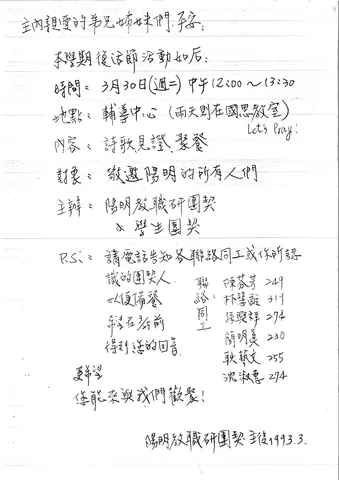 主內親愛的弟兄姊妹們 平安:
本學期復活節活動如后:
時間: 3月30日(週二) 中午 12:00~13:30
地點: 輔導中心 (雨天則在國思教室)
Let's Pray!
內容: 詩歌見證、聚餐
對象: 敬邀陽明的所有人們
主辦: 陽明教職研團契
& 學生團契
P.S.: 請電話告知各聯絡同工或你所認
識的團契人 聯 陳芬芳 249
以便備餐 絡: 林 319
同 274
得到您的回音 工 簡明 230
耿藝文 255
更希望 沈淑惠 274
您能來與我們歡聚!
陽明教職研團契 主後1993.3.